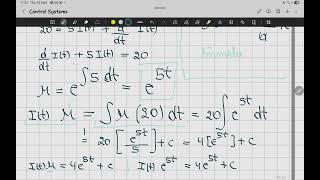 Control Systems
20 = 5I(t) + d/dt I(t)
d/dt I(t) + 5I(t) = 20
μ = e^∫5dt = e^5t
I(t) μ = ∫μ(20)dt = 20∫e^5t dt
= 20[e^5t/5] + c = 4[e^5t] + c
I(t)μ = 4e^5t + c I(t) e^5t = 4e^5t + c